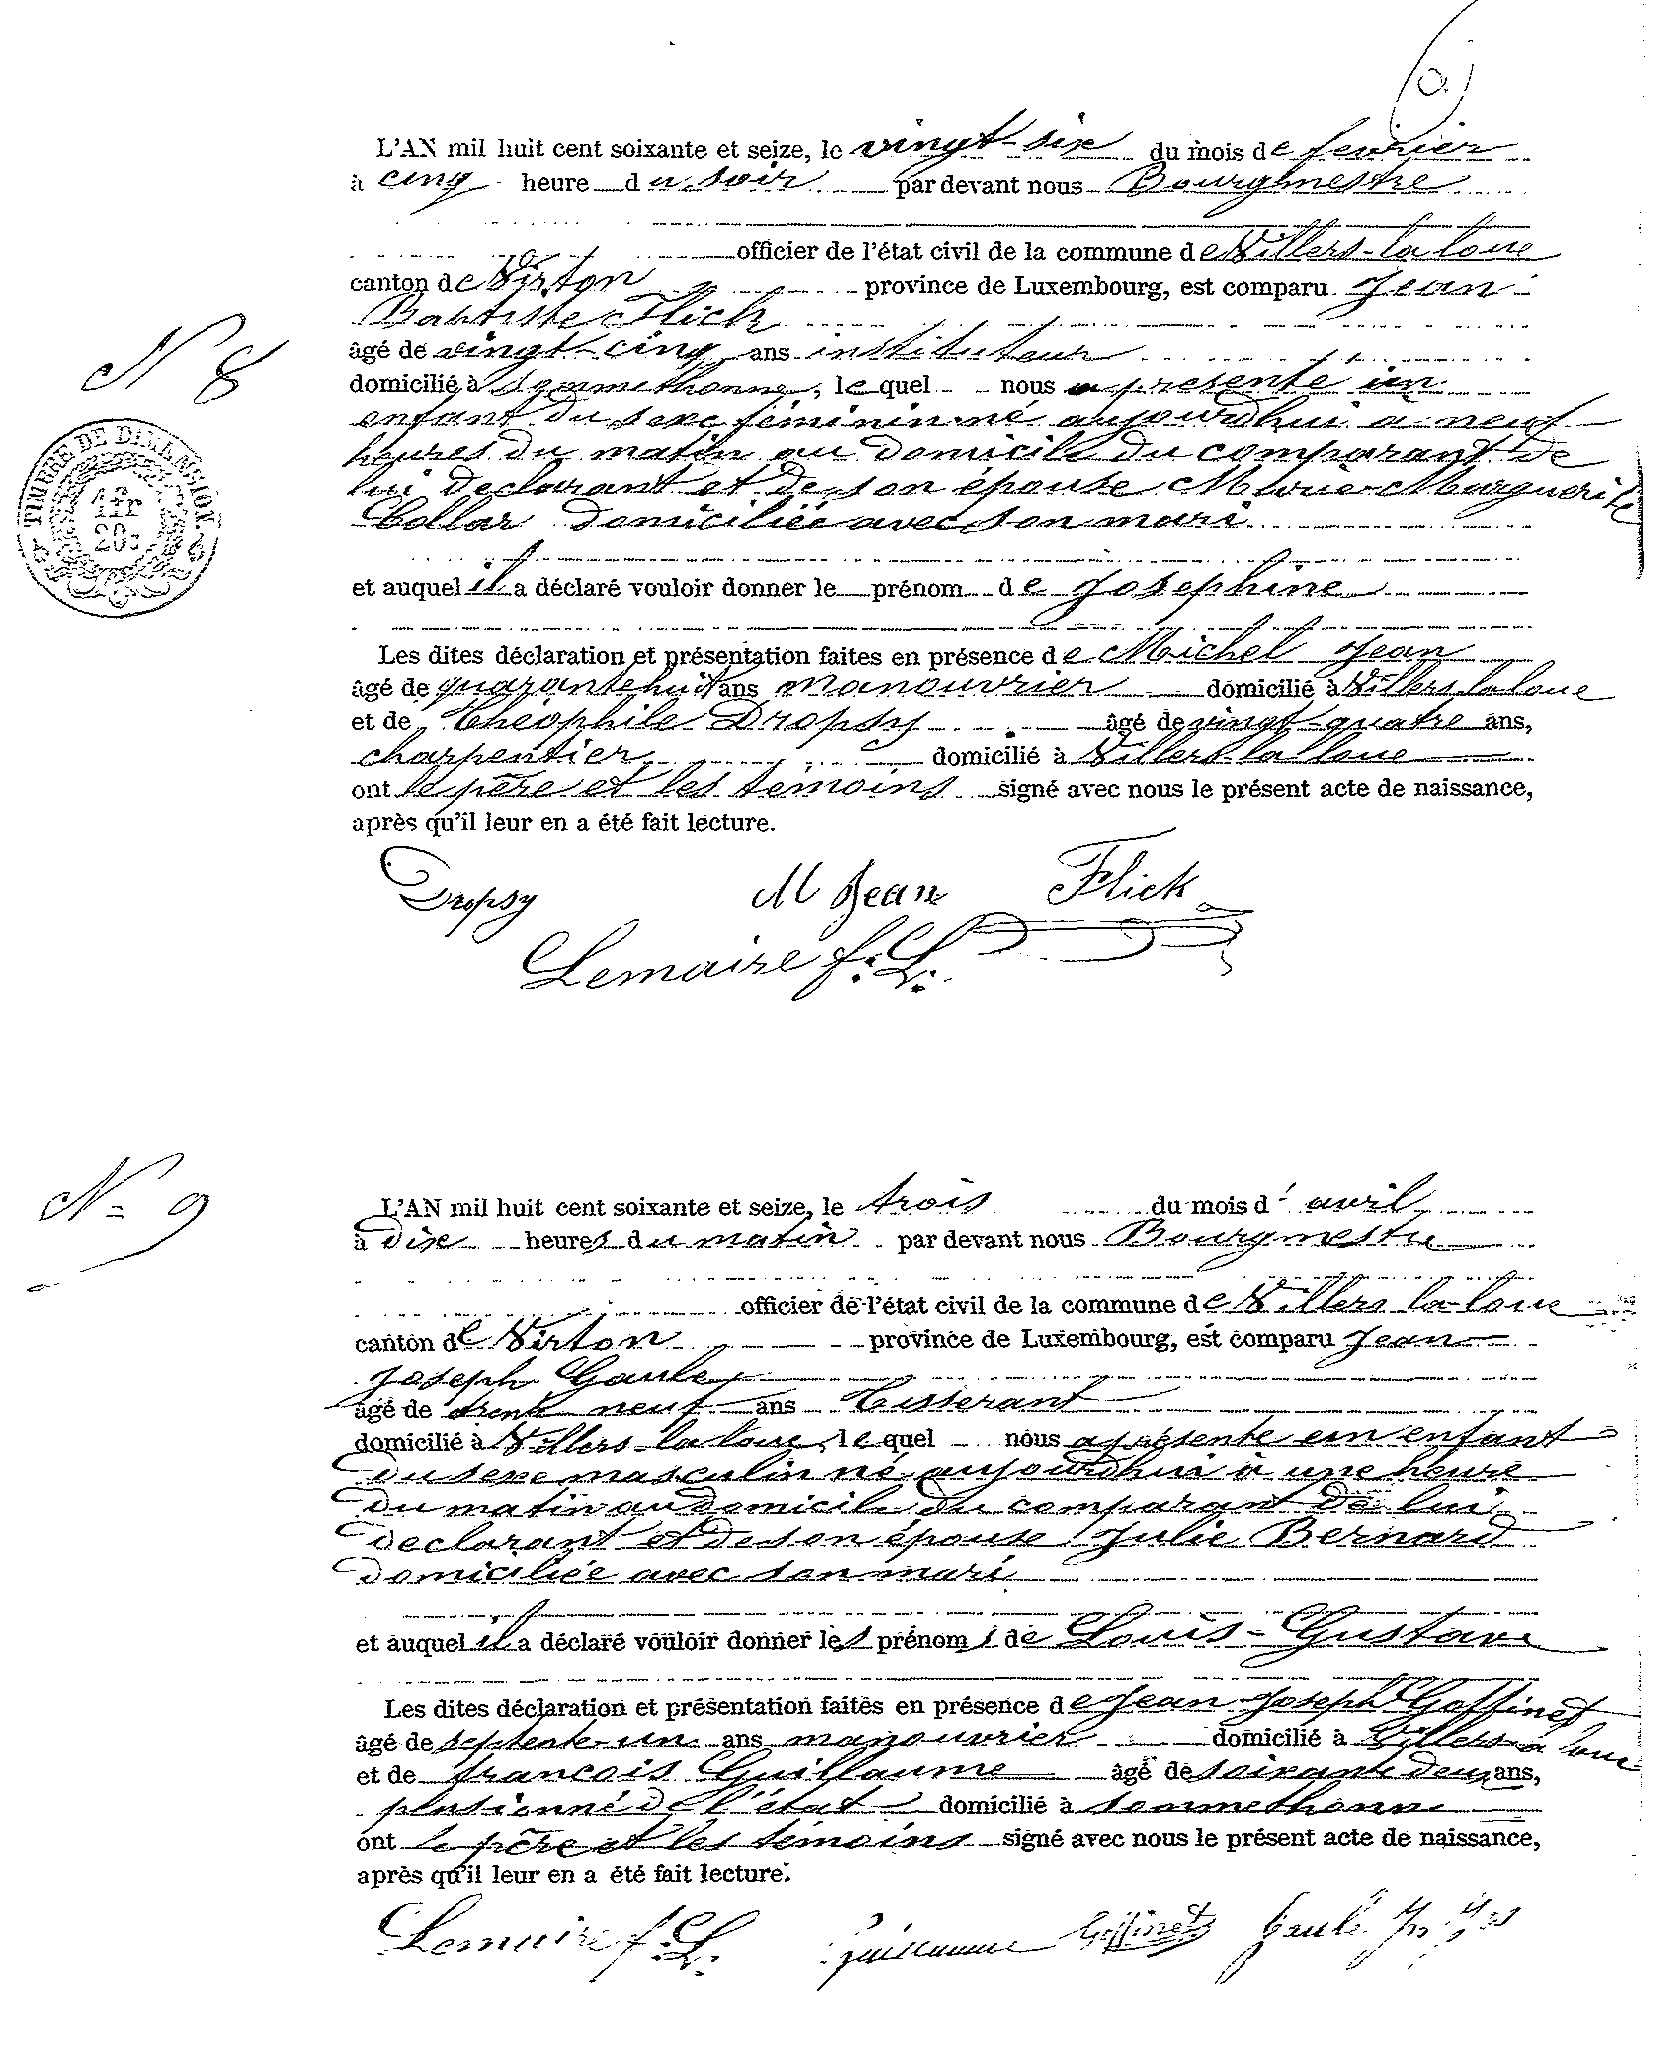 L'AN mil huit cent soixante et seize, le vingt-six du mois de fevrier
à cinq heure du soir par devant nous Bourgmestre
officier de l'état civil de la commune de Villers-la loue
canton de Virton province de Luxembourg, est comparu Jean
Baptiste Flick
N 8
âgé de vingt-cinq ans instituteur
domicilié à Sommethonne, le quel nous a presenté un
enfant du sexe féminin né aujourdhui a neuf
heures du matin au domicile du comparant de
lui declarant et de son épouse Marie-Marguerite
Collar domiciliée avec son mari
TIMBRE DE DIMENSION
1 fr
20 c
et auquel il a déclaré vouloir donner le prénom de Josephine
Les dites déclaration et présentation faites en présence de Michel Jean
âgé de quarante huit ans manouvrier domicilié à Villers la loue
et de Théophile Dropsy âgé de vingt-quatre ans,
charpentier domicilié à Villers-la loue
ont le père et les témoins signé avec nous le présent acte de naissance,
après qu'il leur en a été fait lecture.
Dropsy M Jean Flick
Lemaire f. L.
N= 9
L'AN mil huit cent soixante et seize, le trois du mois d' avril
à dix heures du matin par devant nous Bourgmestre
officier de l'état civil de la commune de Villers la-loue
canton de Virton province de Luxembourg, est comparu Jean
Joseph Gaule
âgé de trente neuf ans Tisserant
domicilié à Villers-la loue, le quel nous a présente un enfant
du sexe masculin né aujourdhui à une heure
du matin au domicile du comparant de lui
declarant et de son épouse Julie Bernard
domiciliée avec son mari
et auquel il a déclaré vouloir donner les prénoms de Louis-Gustave
Les dites déclaration et présentation faites en présence de Jean Joseph Goffinet
âgé de septente-un ans manouvrier domicilié à Villers-la loue
et de francois Guillaume âgé de soixante deux ans,
pensionné de l'état domicilié à sommethonne
ont le père et les témoins signé avec nous le présent acte de naissance,
après qu'il leur en a été fait lecture.
Lemaire f. L. Guillaume Goffinet Gaule